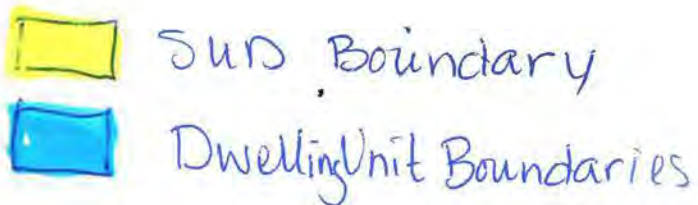 SUD Boundary
Dwelling Unit Boundaries